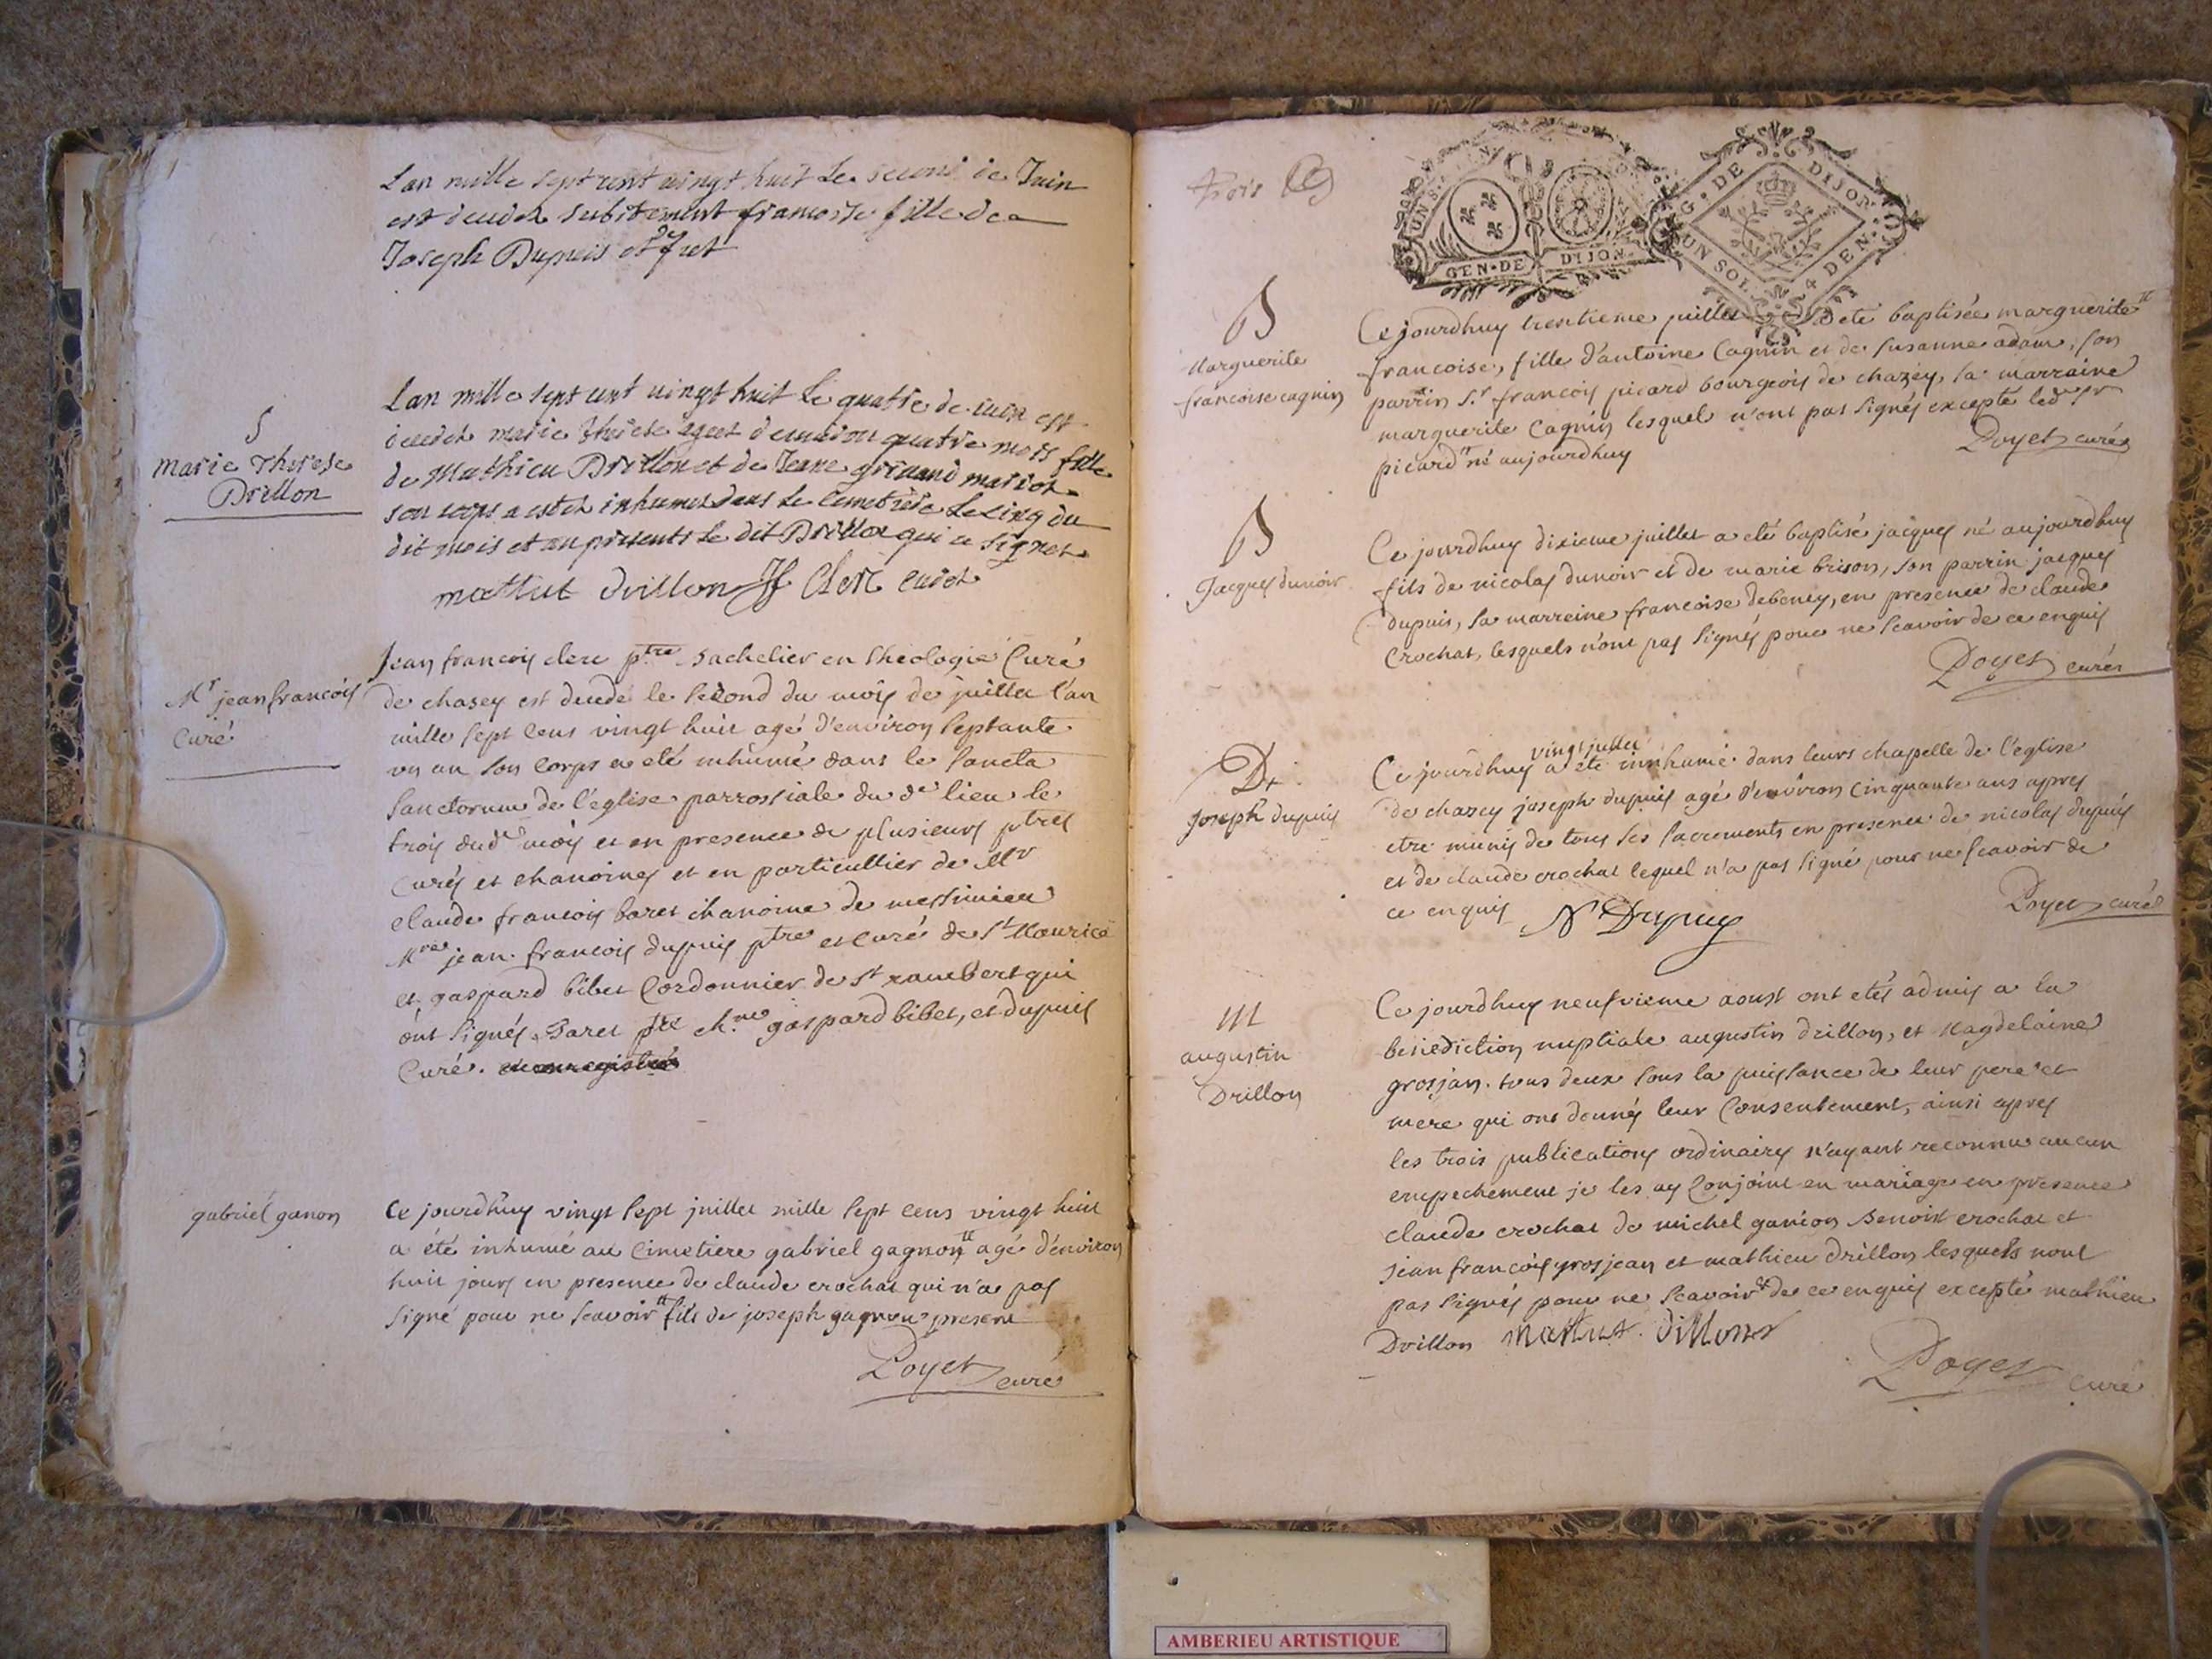 Lan mille sept cent vingt huit Le second de Juin
est decedee subitement francoise fille de
Joseph Dupuis et
Lan mille sept cent vingt huit Le quatre de iuin est
decedee marie therese agee denviron quatre mois fille
de Mathieu Drillon et de Jeane grinand mariot
son corps a estet inhumet dans Le Cemetiere Le cinq du
dit mois et an presents Le dit Drillon qui a signet
S
marie Therese
Drillon
mattut drillon Clerc curet
Mr jean francois
Curé
Jean francois clerc ptre Bachelier en theologie Curé
de chasey est decedé le second du mois de juillet l'an
mille sept cens vingt huit agé d'environ septante
un an son corps a eté inhumé dans le sancta
sanctorum de l'eglise parrossiale du de lieu le
trois dud mois et en presence de plusieurs ptres
Curés et chanoines et en particullier de Mr
claude francois baret chanoine de messimieu
Mre jean francois dupuis ptre et curé de St Maurice
et gaspard bibet Cordonnier de St rambert qui
ont signés Baret ptre ch.ne gaspard bibet, et dupuis
Curé.
gabriel ganon
Ce jourdhuy vingt sept juillet mille sept cens vingt huit
a été inhumé au cimetiere gabriel gagnon agé d'environ
huit jours en presence de claude crochat qui n'a pas
signé pour ne scavoir fils de joseph gagnon present
Poyet curé
trois
GEN·DE DIJON
G·DE DIJON
UN SOL 4 DEN·
B
Marguerite
francoise cagnin
Ce jourdhuy trentieme juillet a eté baptisée marguerite
francoise, fille d'antoine Cagnin et de susanne adam, son
parrin S.r francois picard bourgeois de chazey, sa marraine
marguerite Cagnin lesquel n'ont pas signés excepté led sr
picard né aujourdhuy
Poyet curé
B
Jacques dunoir
Ce jourdhuy dixieme juillet a eté baptisé jacques né aujourdhuy
fils de nicolas dunoir et de marie brison, son parrin jacques
dupuis, sa marreine francoise debeney, en presence de claude
Crochat, lesquels n'ont pas signés pour ne scavoir de ce enquis
Poyet curé
D+
Joseph dupuis
vingt juillet
Ce jourdhuy a eté innhumé dans leurs chapelle de l'eglise
de chazey joseph dupuis agé d'environ cinquante ans apres
etre munis de tous ses sacrements en presence de nicolas dupuis
et de claude crochat lequel n'a pas signé pour ne scavoir de
ce enquis N Dupuy
Poyet curé
M
augustin
Drillon
Ce jourdhuy neufvieme aoust ont etés admis a la
benediction nuptiale augustin drillon, et Magdelaine
grosjan. tous deux sous la puissance de leur pere et
mere qui ont donnés leur Consentement, ainsi apres
les trois publications ordinaires n'ayant reconnu aucun
empechement je les ay Conjoint en mariage en presence
claude crochat de michel ganion Benoist crochat et
jean francois grosjean et mathieu drillon lesquels nont
pas signés pour ne scavoir de ce enquis excepté mathieu
Drillon mattut drillon
Poyet curé
AMBERIEU ARTISTIQUE